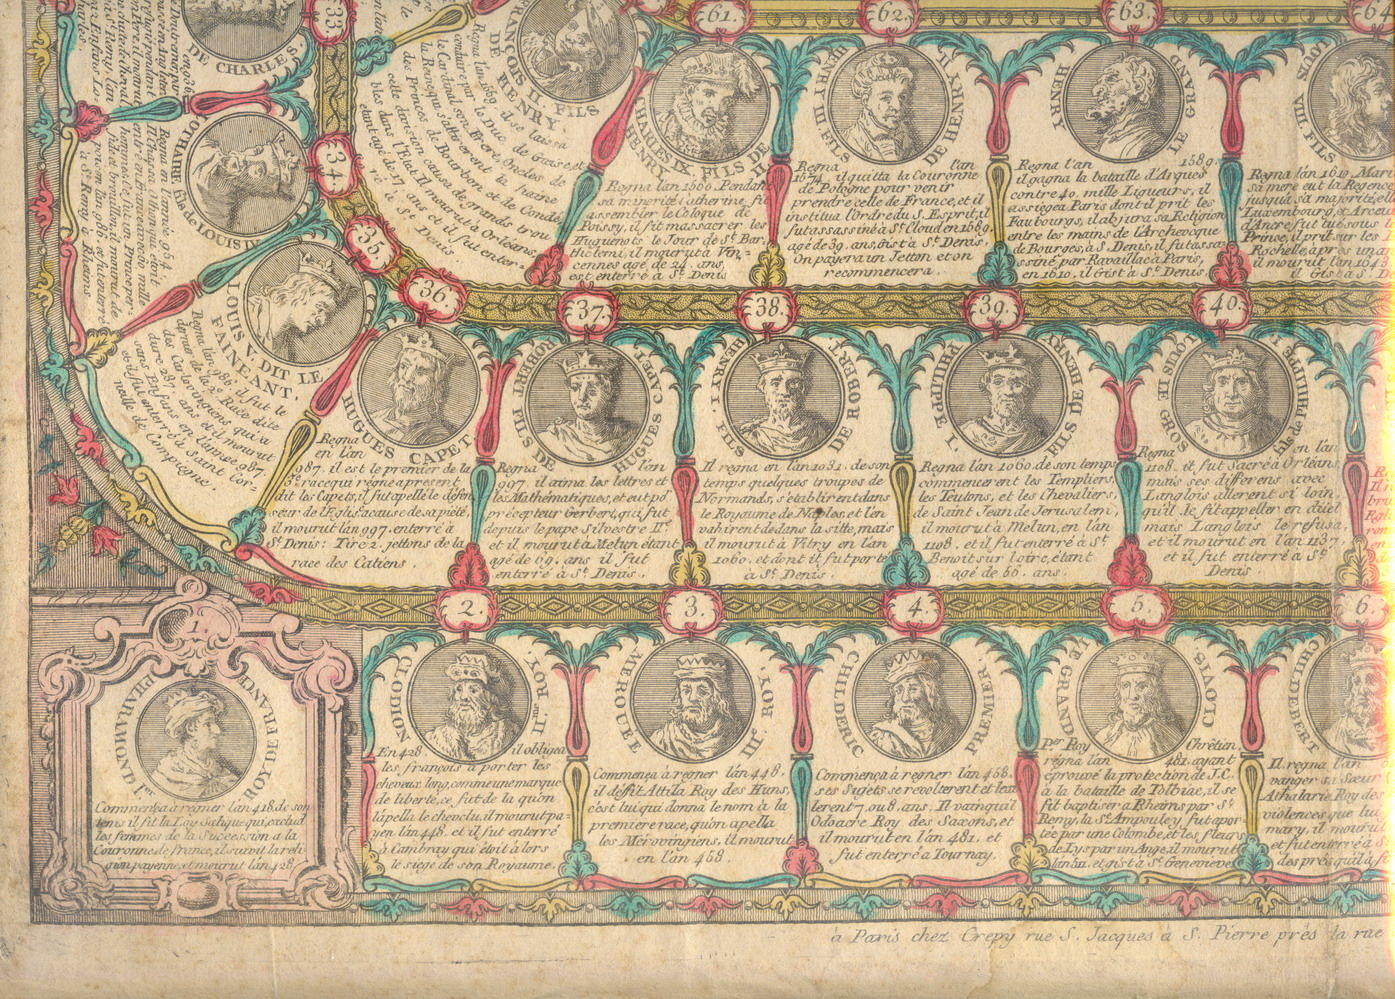 1.
PHARAMOND I.er ROY DE FRANCE
Commença à regner l'an 418. de son
tems il fit la Loy Salique qui exclud
les femmes de la Succession a la
Couronne de france, il suivit la reli-
gion payenne, et mourut l'an 428.
2.
CLODION ROY. II.me
En 428 il obligea
les françois à porter les
cheveux long, comme une marque
de liberte, ce fut de la qu'on
l'apella le chevelu, il mourut pa-
yen l'an 448. et il fut enterré
à Cambray qui étoit à lors
le siège de son Royaume.
3.
MEROUÉE III.e ROY
Commença à regner l'an 448.
il défit Attila Roy des Huns,
c'est lui qui donna le nom à la
premiere race, qu'on apella
les Merovingiens, il mourut
en l'an 458.
4.
CHILDERIC PREMIER
Commença à regner l'an 458.
ses Sujets se revolterent et l'exi
lerent 7. ou 8. ans. Il vainquit
Odoacre Roy des Saxons, et
il mourut en l'an 481. et
fut enterré a Tournay.
5.
CLOVIS LE GRAND
P.er Roy Chrétien
régna l'an 481. ayant
éprouvé la protection de J.C.
à la bataille de Tolbiac, il se
fit baptiser a Rheims par S.t
Remy, la S.te Ampoule y fut apor-
tée par une Colombe, et les fleurs
de Lys par un Ange, il mourut
l'an 511. et gist à S.te Genevieve
6.
CHILDEBERT
Il regna l'an
vanger sa Sœur
Athalarie, Roy des
violences que lui
mary, il mourut
et fut enterré à S.
des prés qu'il à
33.
DE CHARLES.
34.
LOTHAIRE fils de LOUIS IV
Regna en l'année 954.
35.
LOUIS V. DIT LE
FAINEANT.
Regna l'an 986. il fut le
dernier de la 2.e Race dite
des Carlovingiens qui a
duré 237 ans et il mourut
sans Enfans en l'année 987.
et il fut enterré à Saint Cor-
neille de Compiegne.
36.
HUGUES CAPET
Regna
en l'an
987. il est le premier de la
3.e race qui régne a present
dit les Capets, il fut apellé le défen
seur de l'Eglise a cause de sa piété,
il mourut l'an 997. enterré à
S.t Denis: Tire 2. jettons de la
race des Catiens.
37.
ROBERT FILS DE HUGUES CAPET
Regna l'an
997. il aima les lettres et
les Mathématiques, et eut p.r
précepteur Gerbert, qui fut
depuis le pape Silvestre II.e
et il mourut à Melun étant
agé de 69. ans il fut
enterré à S.t Denis.
38.
HENRY I. FILS DE ROBERT
Il regna en l'an 1031. de son
temps quelques troupes de
Normands, s'établirent dans
le Royaume de Naples, et l'on
vahirent dedans la sitte, mais
il mourut à Vitry en l'an
1060. et dont il fut porté
à S.t Denis.
39.
PHILIPPE I. FILS DE HENRY
Regna l'an 1060. de son temps
commencerent les Templiers,
les Teutons, et les Chevaliers,
de Saint Jean de Jerusalem,
il mourut à Melun, en l'an
1108. et il fut enterré à S.t
Benoit sur loire, étant
agé de 60. ans.
40.
LOUIS LE GROS fils de PHILIPPE
Regna en l'an
1108. il fut Sacré a Orléans,
mais ses differens avec
L'anglois allerent si loin,
qu'il le fit appeller en duël
mais L'anglois le refusa,
et il mourut en l'an 1137.
et il fut enterré a S.t
Denis.
FRANÇOIS II. FILS
DE HENRY.
Regna l'an 1559. il se laissa
conduire par le Duc de Guise et
le Cardinal son Frere, Oncles de
la Reine, qui s'attirerent la haine
des Princes de Bourbon et de Condé,
cette dans ion causa de grands trou
bles dans l'Etat. Il mourut à Orléans
étant agé de 17. ans et il fut enter-
ré a
S.t Denis
61.
CHARLES IX. FILS DE HENRY II
Regna l'an 1560. Pendant
sa minorité Catherine, fit
assembler le Coloque de
Poissy, il fit massacrer les
Huguenots le Jour de S.t Bar
thelemi, il mourut a Vin-
cennes agé de 24 ans,
est enterré a S.t Denis
62.
HENRI III FILS DE HENRY II.
Regna l'an
1574. il quitta la Couronne
de Pologne pour venir
prendre celle de France, et il
institua l'Ordre du S. Esprit, il
fut assassiné à S.t Cloud en 1589.
agé de 39. ans, Gist à S.t Denis.
On payera un Jetton et on
recommencera.
63.
HENRY LE GRAND
Regna l'an 1589.
il gagna la bataille d'Arques
contre 40. mille Ligueurs, il
assiegea Paris dont il prit les
Faubourgs, il abjura sa Religion
entre les mains de l'Archevêque
de Bourges, à S. Denis, il fut assa
ssiné par Ravaillac à Paris,
en 1610, il Gist à S.t Denis.
64
LOUIS XIII FILS
Regna l'an 1610, Marie
sa mere eut la Regence
jusqu'à sa majorité, el
Luxembourg, et Arcueil
d'Ancre fut tué sous l
Prince, il prit sur les
Rochelle, apres un a
il mourut l'an 1643
il Gist a S.t
à Paris chez Crepy rue S. Jacques à S. Pierre prés la rue